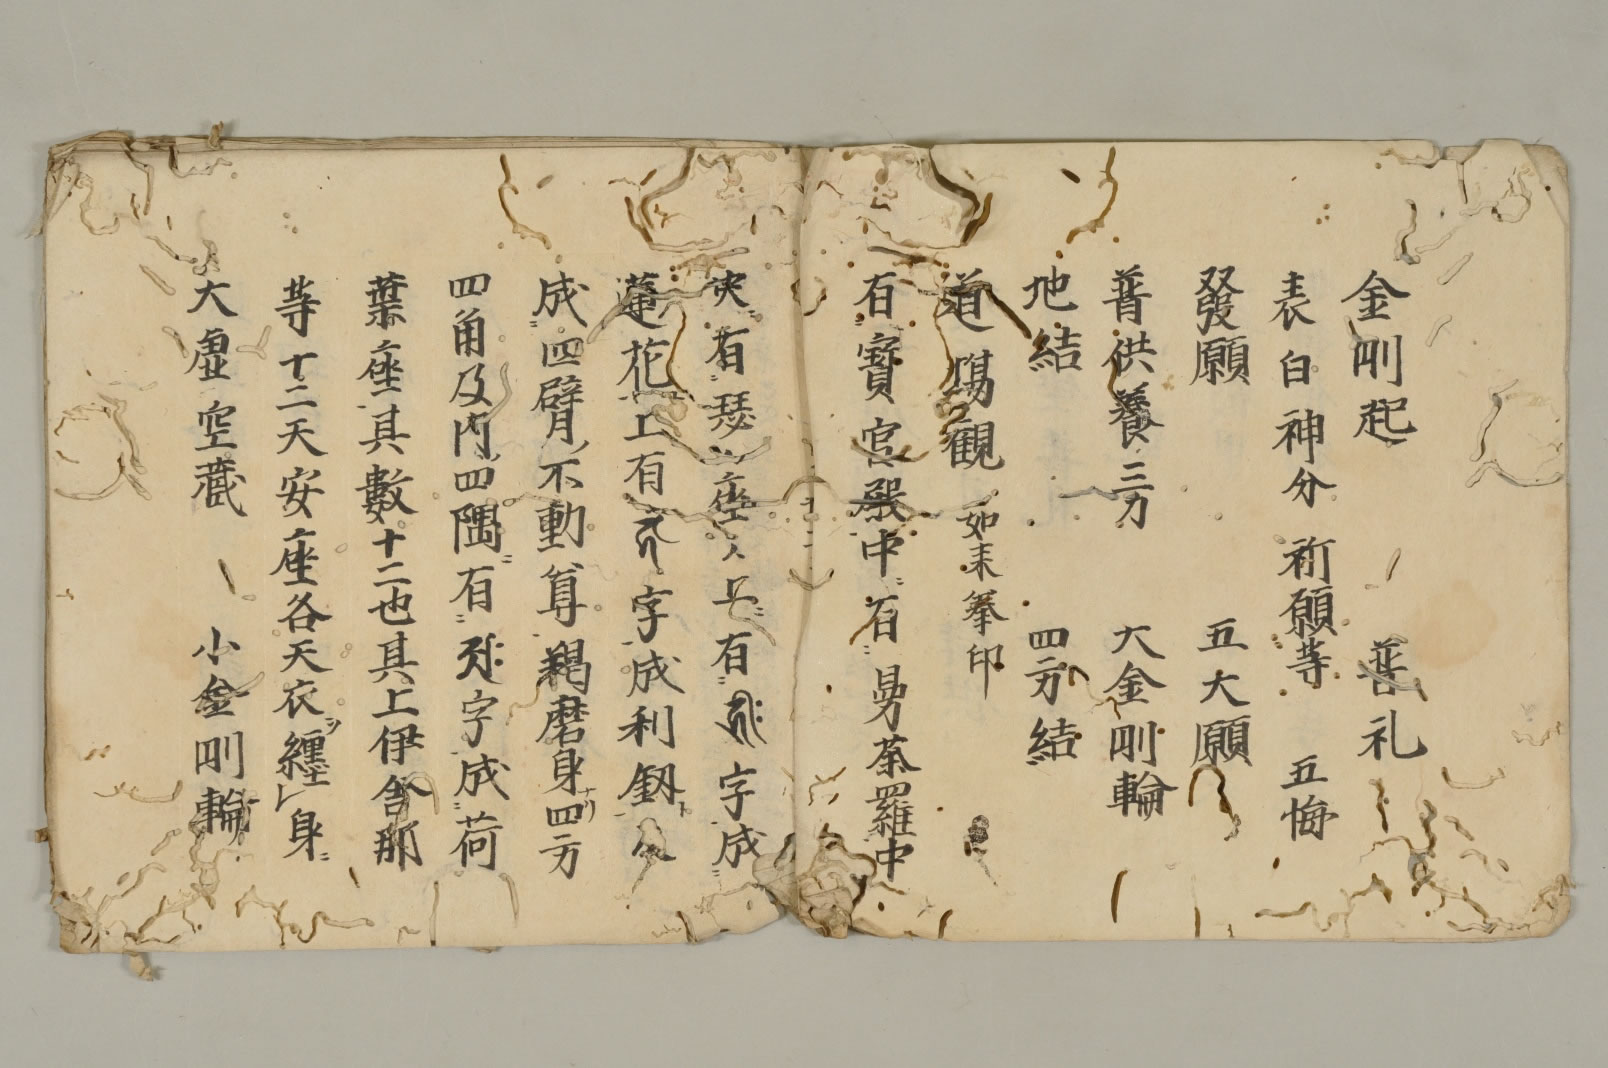 金剛起 普礼
表白神分 祈願等 五悔
發願 五大願
普供養三力 大金剛輪
地結 四方結
道場觀 如来拳印
有寳宮殿中有曼荼羅中
央有瑟々座々上有 字成
蓮花上有 字成利釼
成四臂不動尊羯磨身四方
四角及内四隅有 字成荷
葉座其數十二也其上伊舎那
等十二天安座各天衣纒身
大虚空蔵 小金剛輪